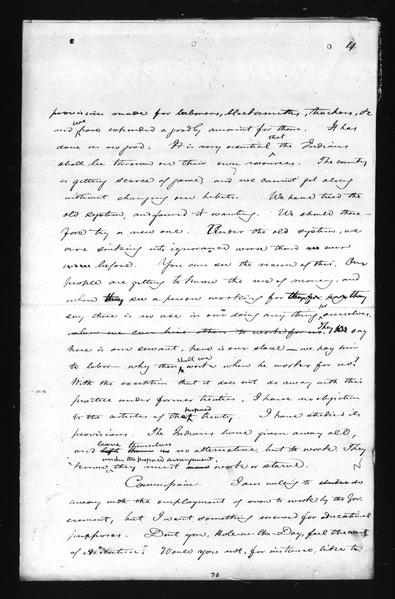 4
provisions made for laborers, blacksmiths, teachers, &c
and we have expended a goodly amount for them. It has
done us no good. It is very essential that the Indians
shall be thrown on their own resources. The country
is getting scarce of game, and we cannot get along
without changing our habits. We have tried the
old system, and found it wanting. We should there-
fore try a new one. Under the old system, we
are sinking into ignorance worse than ever
before. You can see the reason of this. Our
people are getting to know the use of money, and
when they see a person working for they
say there is no use in our doing any thing for ourselves.
where we can hire others to work for us. They say
here is our servant, here is our slave – we pay him
to labor – why then shall we work when he works for us?
With the exception that it does not do away with this
practice under former treaties, I have no objection
to the articles of the proposed treaty. I have studied its
provisions. The Indians have given away all,
and leave themselves no alternative, but to work. They
know, under the proposed arrangement, they must work or starve.
Commissioner. I am willing to do
away with the employment of men to work by the Gov-
ernment, but I want something saved for educational
purposes. Don't you, Hole-in-the-Day, feel the want
of education? Would you not, for instance, like to
70